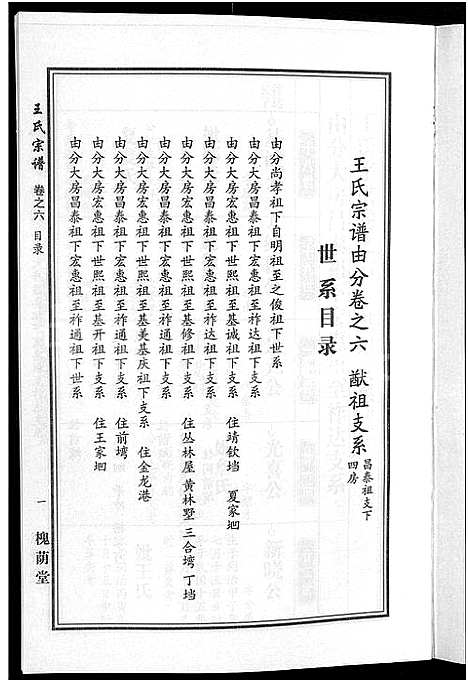 王氏宗谱由分卷之六 猷祖支系
昌泰祖支下
四房
世系目录
由分尚孝祖下自明祖至之俊祖下世系
由分大房昌泰祖下宏惠祖至祚达祖下支系
由分大房宏惠祖下世熙祖至基诚祖下支系 住靖钦垱 夏家垇
由分大房昌泰祖下宏惠祖至祚达祖下支系
由分大房宏惠祖下世熙祖至基修祖下支系 住丛林屋 黄林墅 三合塆 丁垱
由分大房昌泰祖下宏惠祖至祚通祖下世系
由分大房宏惠祖下世熙祖至基美基庆祖下支系 住金龙港
由分大房昌泰祖下宏惠祖至祚通祖下支系 住前塆
由分大房宏惠祖下世熙祖至基开祖下支系 住王家垇
由分大房昌泰祖下宏惠祖至祚通祖下世系
王氏宗谱 卷之六 目录
一
槐荫堂